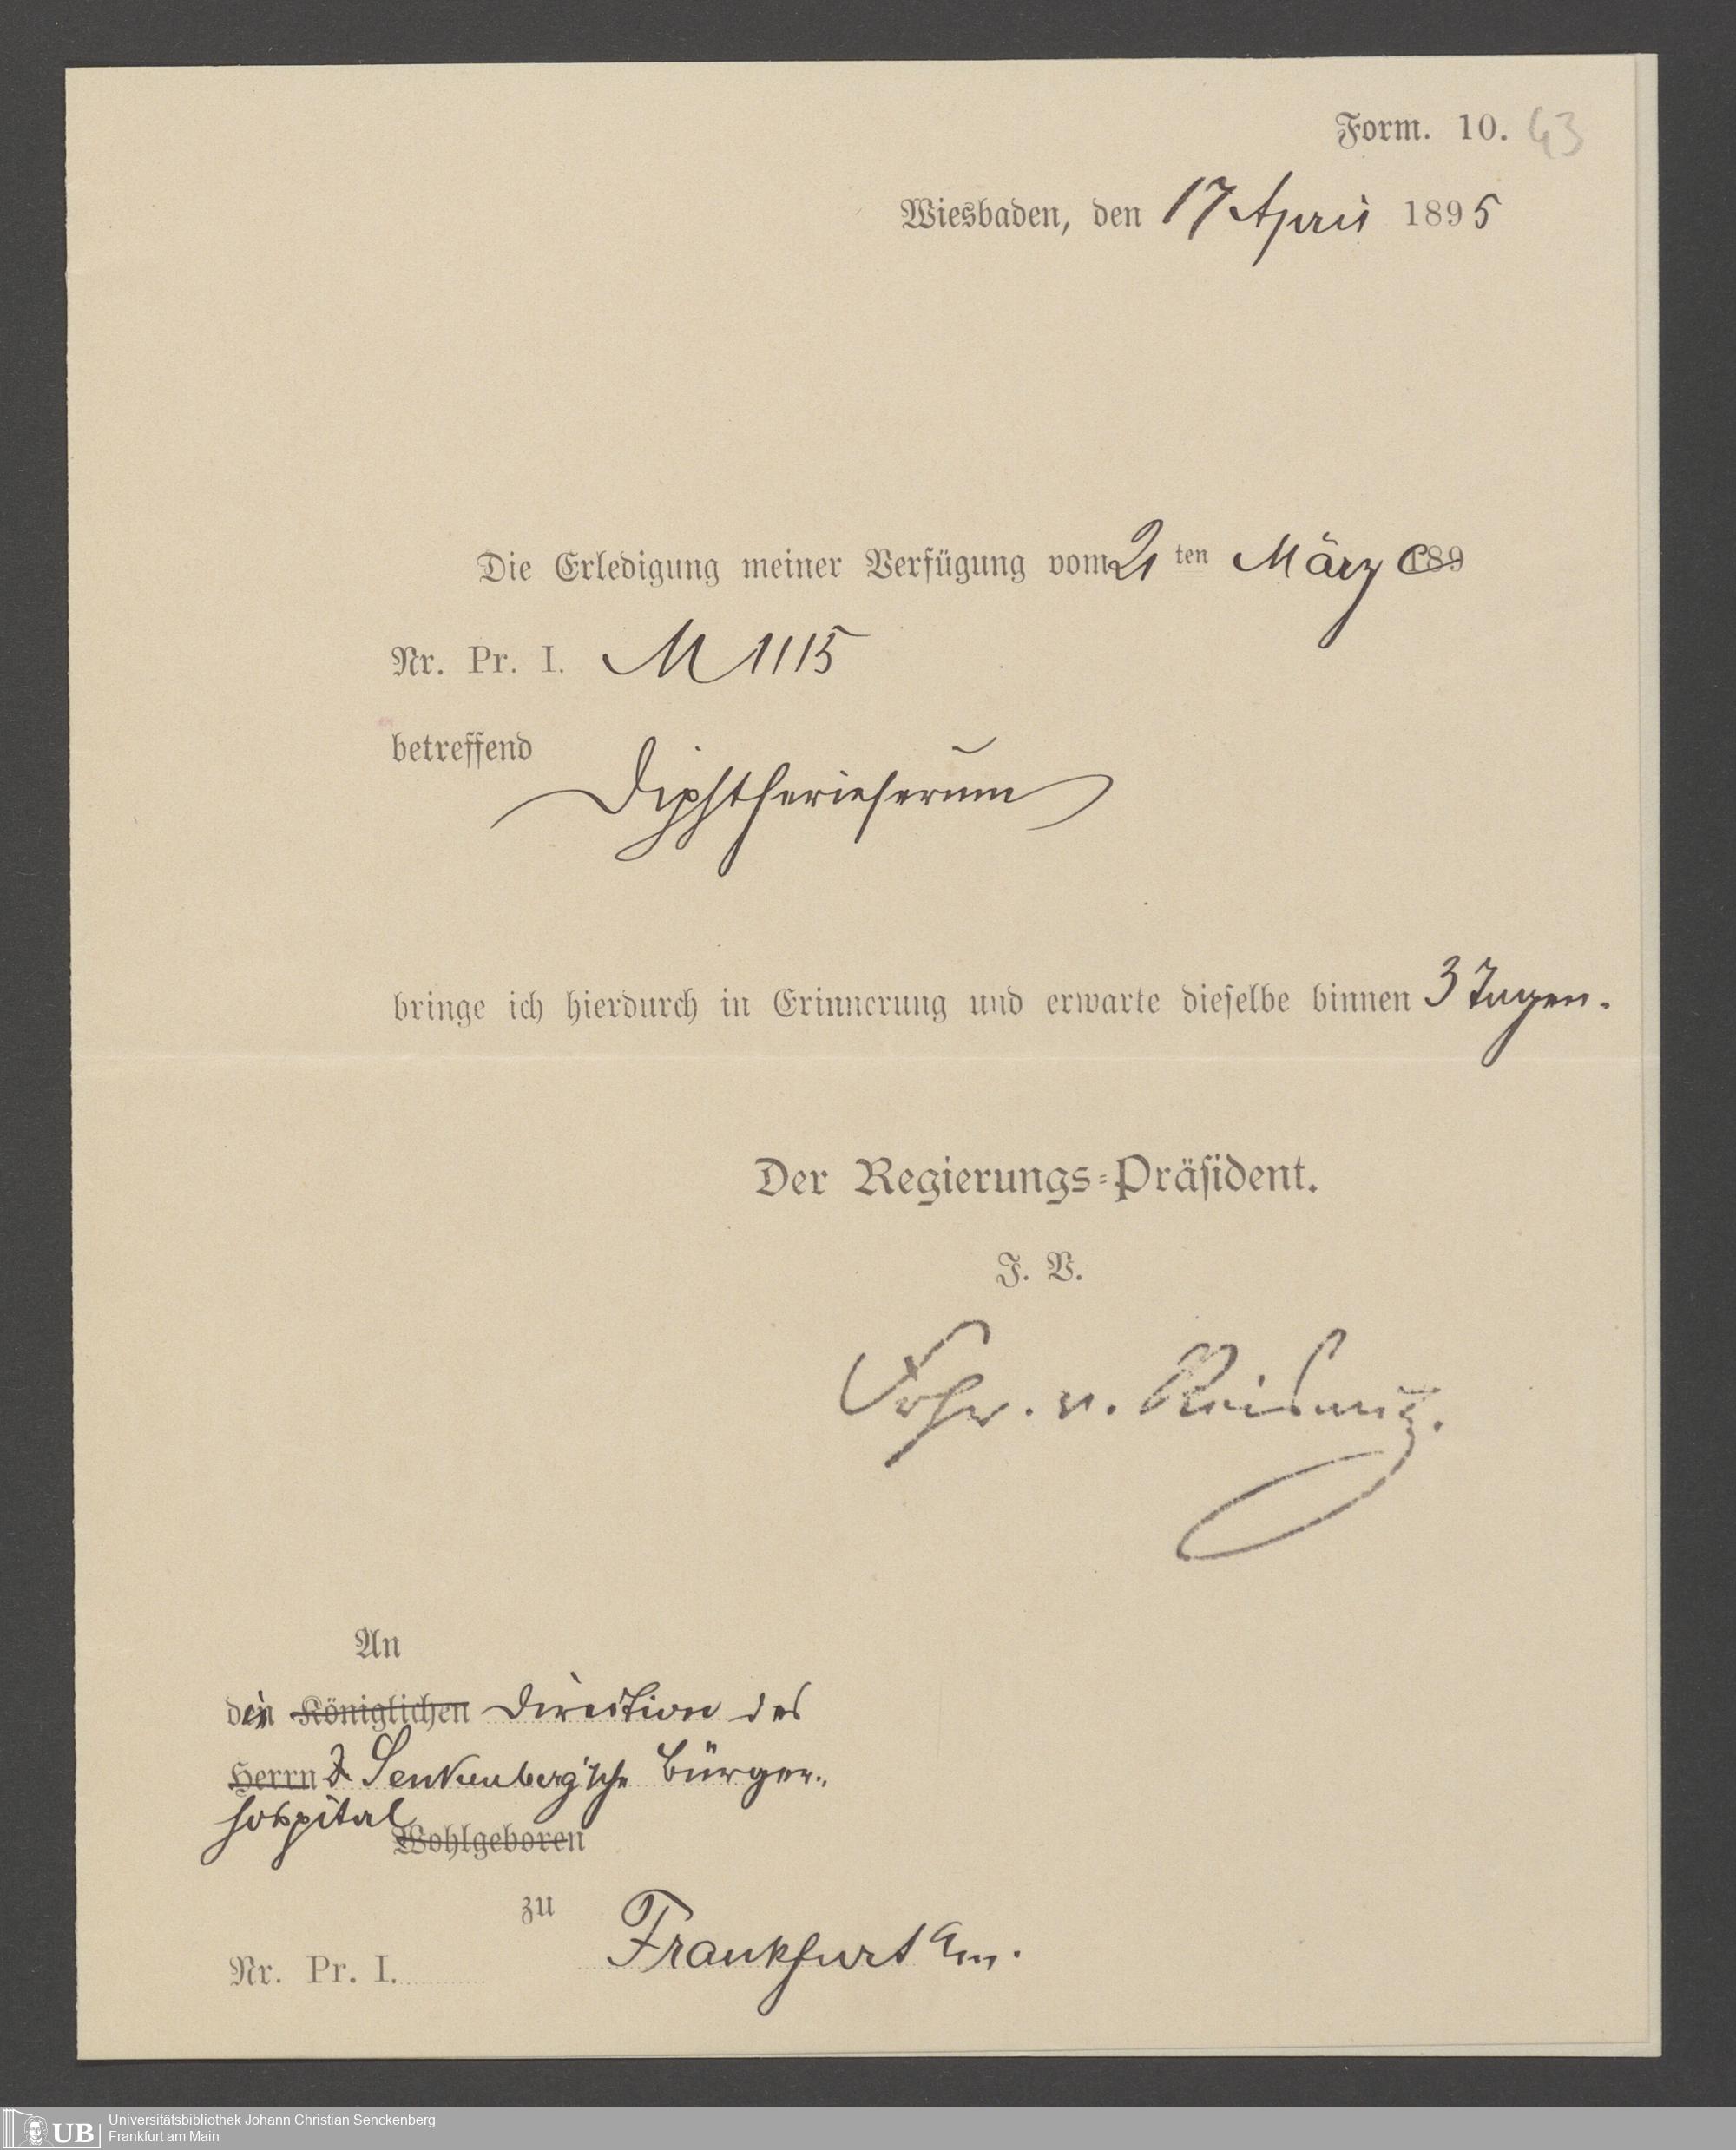 Form. 10. 43
Wiesbaden, den 17 April 1895
Die Erledigung meiner Verfügung vom 21 ten März c 189
Nr. Pr. I. M 1115
betreffend
Diphtherieserum
bringe ich hierdurch in Erinnerung und erwarte dieselbe binnen 3 Tagen.
Der Regierungs-Präsident.
J. V.
Frhr. v. Reiswitz.
An
die Königlichen Direction des
Herrn Senkenberg'sche Bürger-
hospital
Wohlgeboren
zu
Frankfurt a/m.
Nr. Pr. I.
UB
Universitätsbibliothek Johann Christian Senckenberg
Frankfurt am Main